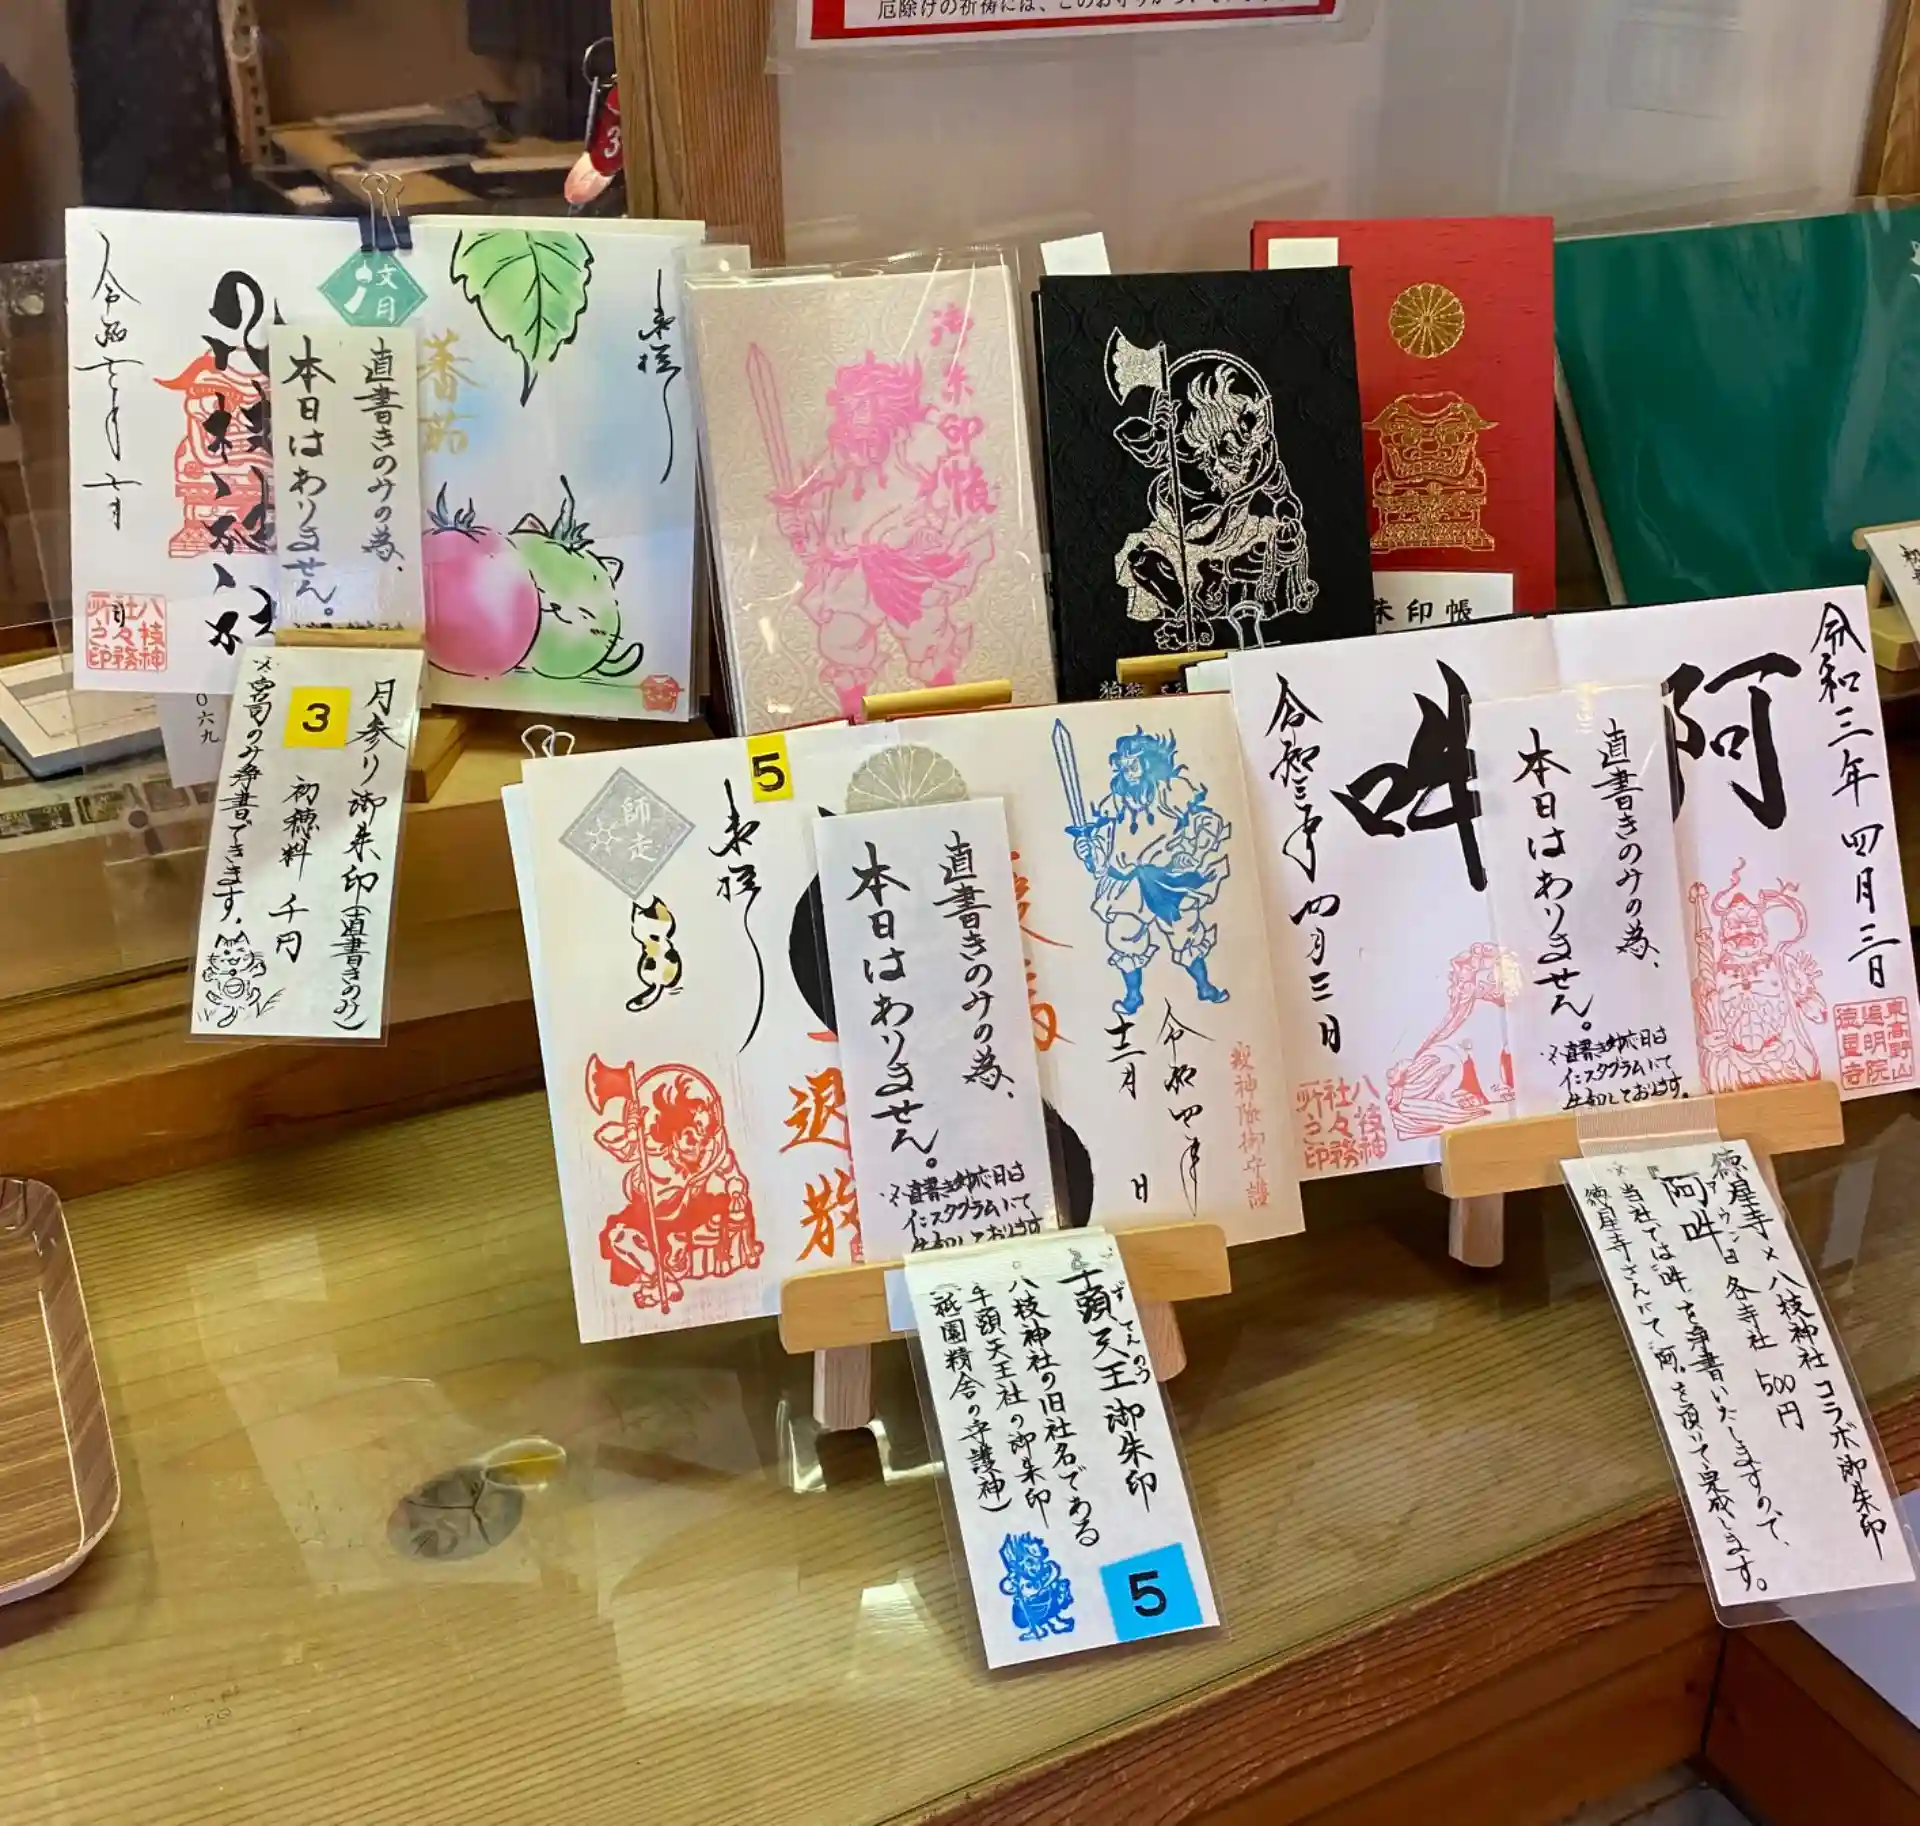 厄除けの祈祷には、このお守りが
令和七年七月
文月
蕃茄
奉拝
直書きのみの為、
本日はありません。
八枝神
社々務
所之印
月参り御朱印(直書きのみ)
初穂料 千円
※宮司のみ浄書できます。
3
〇六九
御朱印帳
朱印帳
5
師走
奉拝
退散
直書きのみの為、
本日はありません。
※直書き対応日は
インスタグラムにて
告知しております
令和四年
十二月
日
疫神除御守護
牛頭天王御朱印
八枝神社の旧社名である
牛頭天王社の御朱印
(祇園精舎の守護神)
5
令和三年四月三日
阿
吽
令和三年四月三日
直書きのみの為、
本日はありません。
※直書き対応日は
インスタグラムにて
告知しております。
八枝神
社々務
所之印
東高野山
遍明院
徳星寺
徳星寺×八枝神社コラボ御朱印
『阿吽』 各寺社 500円
※当社では“吽”を浄書いたしますので、
徳星寺さんにて“阿”を頂いて完成します。